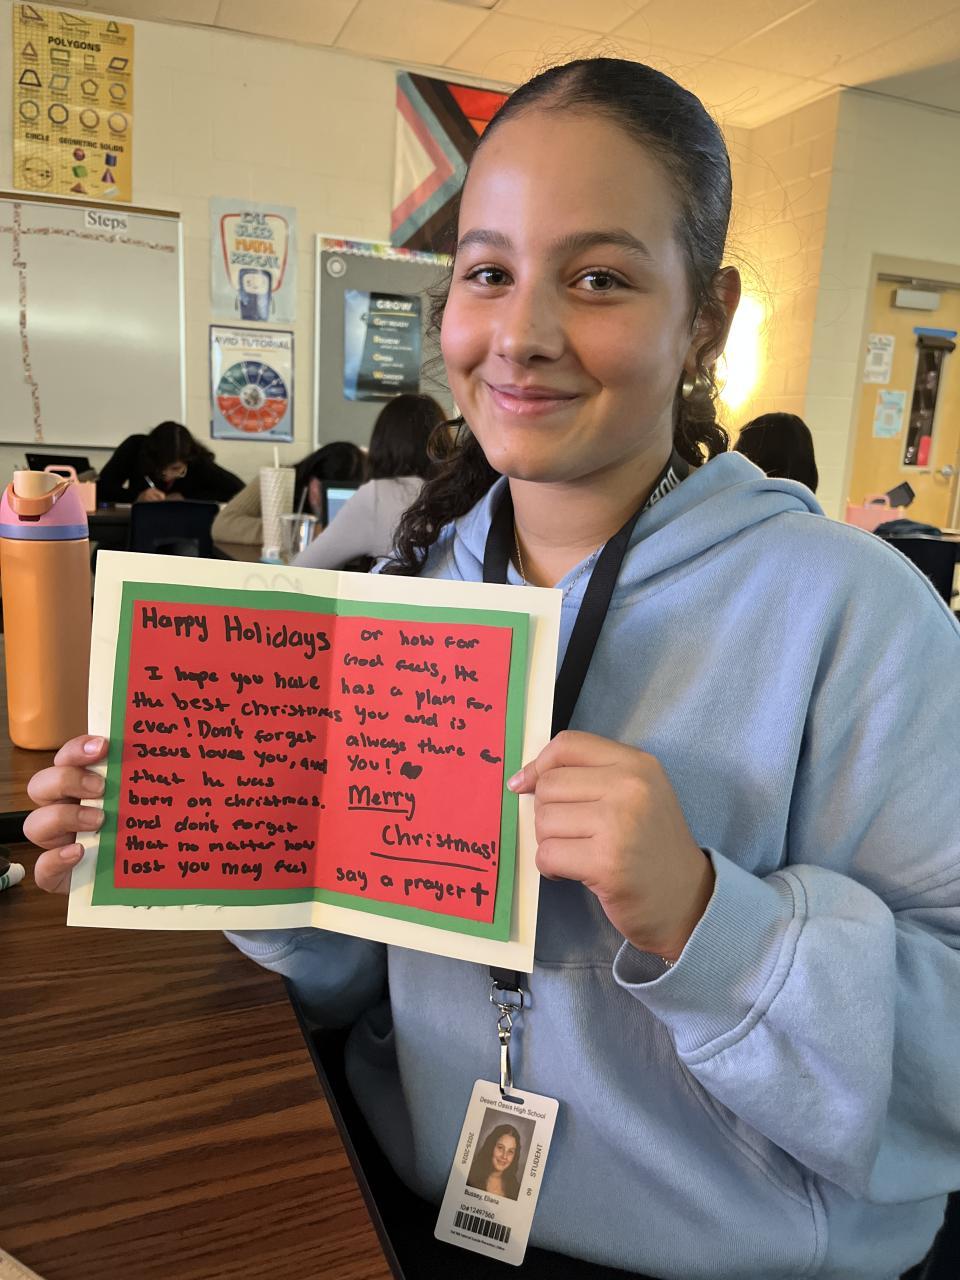 POLYGONS
CIRCLE
GEOMETRIC SOLIDS
Steps
EAT
SLEEP
MATH
REPEAT
AVID TUTORIAL
GROW
Happy Holidays
I hope you have
the best christmas
ever! Don't forget
Jesus loves you, and
that he was
born on christmas.
and don't forget
that no matter how
lost you may feel
or how far
God feels, He
has a plan for
you and is
always there
you!
Merry
Christmas!
say a prayer
Desert Oasis High School
2025-2026
STUDENT
09
Bussey, Eliana
ID#12497560